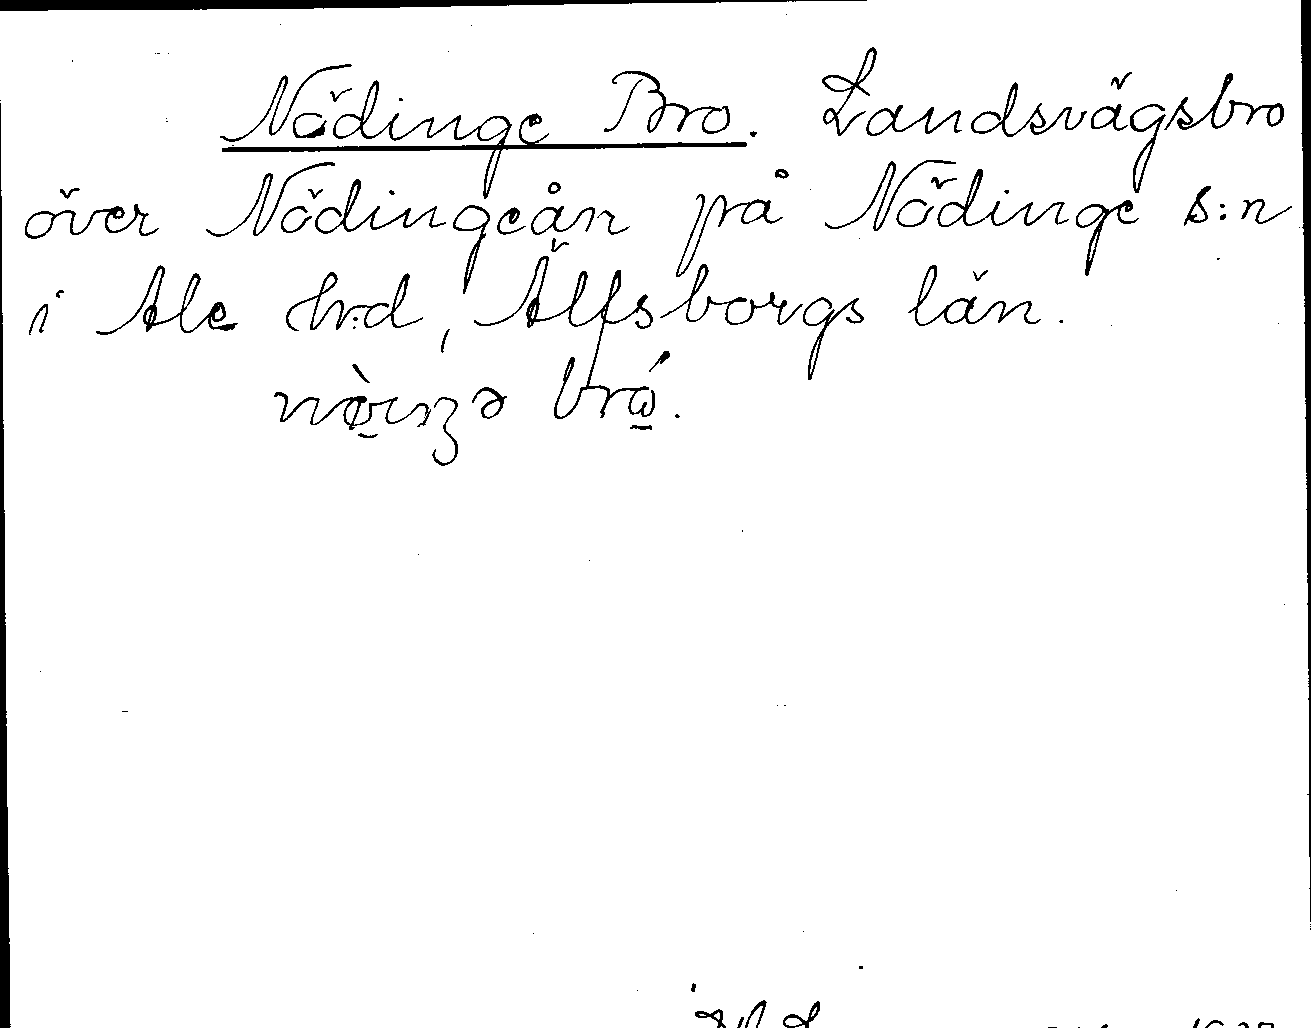 Nödinge Bro. Landsvägsbro
över Nödingeån på Nödinge s:n
i Ale h:d, Älfsborgs län.